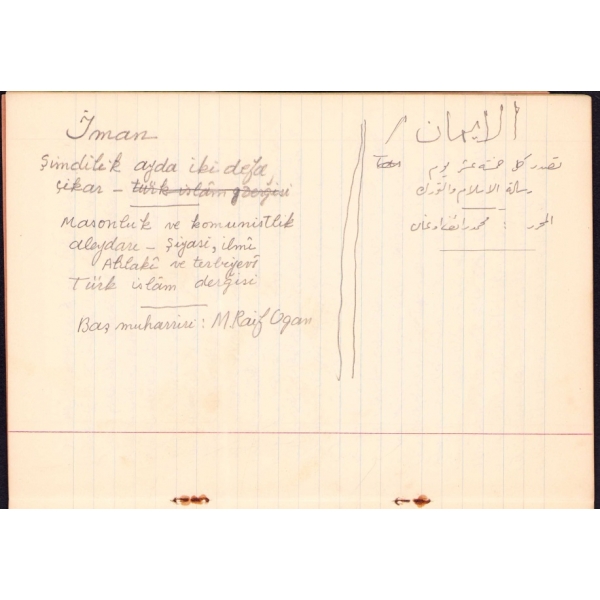 İman
Şimdilik ayda iki defa
çıkar – türk islâm dergisi
Masonluk ve komunistlik
aleydarı – Şiyasi, ilmî
Ahlakî ve terbiyevî
Türk islâm dergisi
Baş muharriri : M. Raif Ogan
الايمان /
تصدر كل خمسة عشر يوم
رسالة الاسلام والترك
المحرر : محمد رائف اوغان